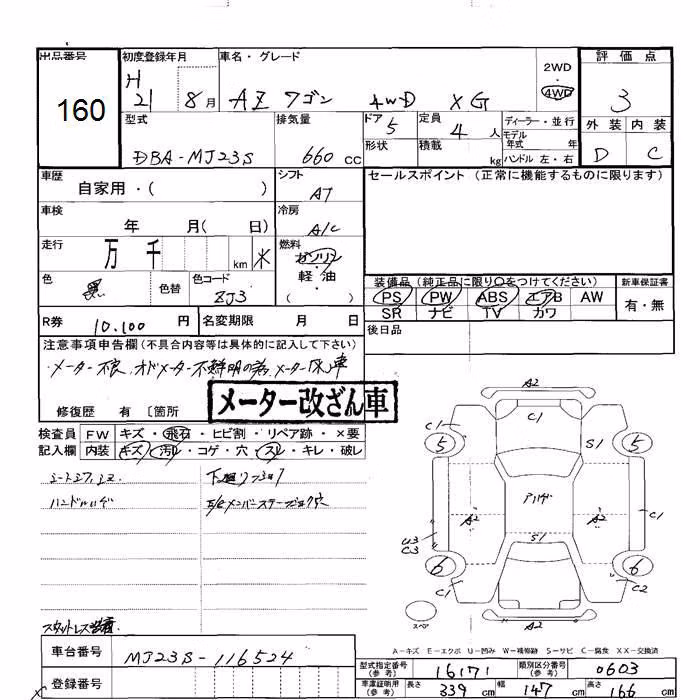 出品番号
160
初度登録年月
H
21 8月
車名・グレード
AZ ワゴン 4WD XG
2WD
・
4WD
評価点
3
外装 内装
D C
型式
DBA-MJ23S
排気量
660 cc
ドア
5
形状
定員
4 人
積載
kg
ディーラー・並行
モデル
年式 年
ハンドル 左・右
車歴
自家用・( )
シフト
AT
車検
年 月( 日)
冷房
A/C
走行
万 千 km
燃料
ガソリン
・
軽油
( )
色
黒
色替
色コード
ZJ3
R券
10,100 円
名変期限 月 日
セールスポイント(正常に機能するものに限ります)
装備品(純正品に限り○をつけてください)
PS PW ABS エアB AW
SR ナビ TV カワ
新車保証書
有・無
後日品
注意事項申告欄(不具合内容等は具体的に記入して下さい)
・メーター不良、オドメーター不鮮明の為、メーター改ざん車
メーター改ざん車
修復歴 有 〔箇所
検査員
記入欄
FW キズ・飛石・ヒビ割・リペア跡・×要
内装 キズ・汚レ・コゲ・穴・スレ・キレ・破レ
ハンドルハゲ
スタットレス装着
A2
C1
C1
S1
5
5
A2
A2
S1
C1
U3
C3
6
6
C1
C2
A2
スペア
A-キズ E-エクボ U-凹み W-補修跡 S-サビ C-腐食 XX-交換済
車台番号
MJ23S-116524
登録番号
型式指定番号
(参考)
16171
類別区分番号
(参考)
0603
車庫証明用
(参考)
長さ 339 cm
幅 147 cm
高さ 166 cm